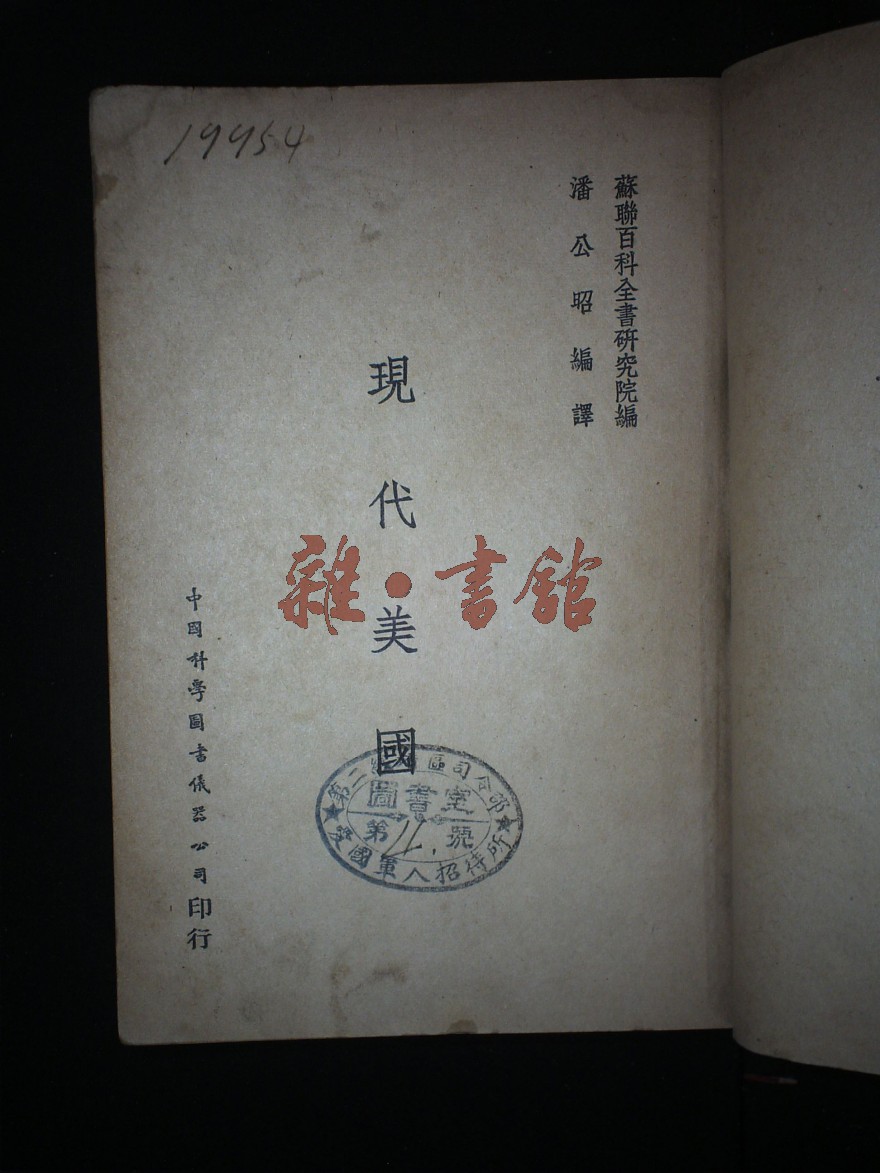 19954
蘇聯百科全書研究院編
潘公昭編譯
現代美國
雜·書館
中國科學圖書儀器公司印行
第二 區司令部
圖書室
第 號
國軍人招待所